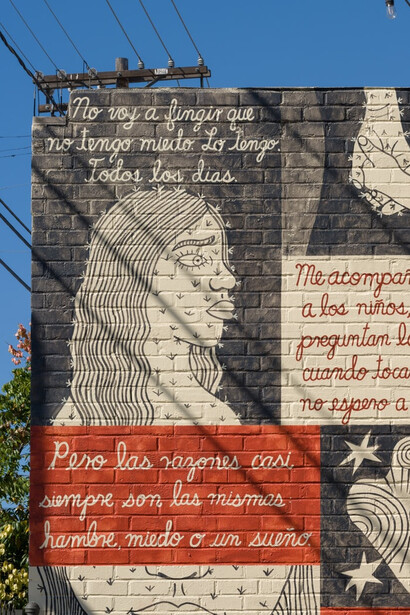 No voy a fingir que
no tengo miedo. Lo tengo.
Todos los días.
Me acompañ
a los niños,
preguntan l
cuando toca
no espero a
Pero las razones casi
siempre son las mismas:
hambre, miedo o un sueño.